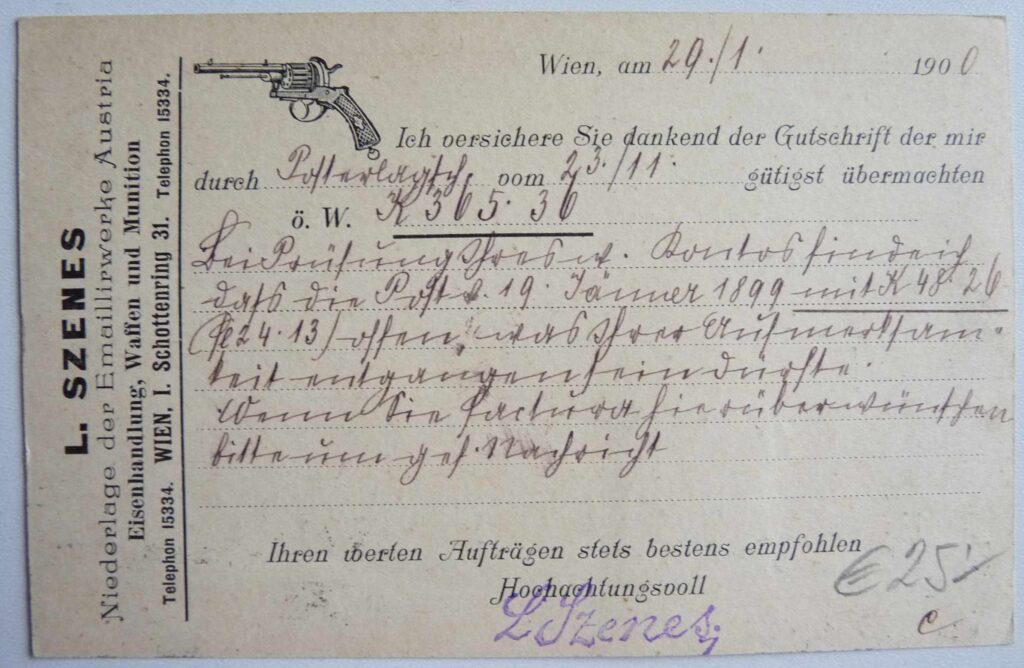 L. SZENES
Niederlage der Emaillirwerke Austria
Eisenhandlung, Waffen und Munition
Telephon 15334. WIEN, I. Schottenring 31. Telephon 15334.
Wien, am 29./1. 1900
Ich versichere Sie dankend der Gutschrift der mir
durch vom 23./11. gütigst übermachten
ö. W. K 365.36
Bei Prüfung Ihres w. Kontos finde ich
dass die Post v. 19. Jänner 1899 mit K 48.26
(fl 24.13) offen, was Ihrer Aufmerksam-
keit entgangen sein dürfte.
Wenn Sie Factura hierüber wünschen
bitte um gef. Nachricht
Ihren werten Aufträgen stets bestens empfohlen
Hochachtungsvoll
L Szenes
€ 25.-
c.